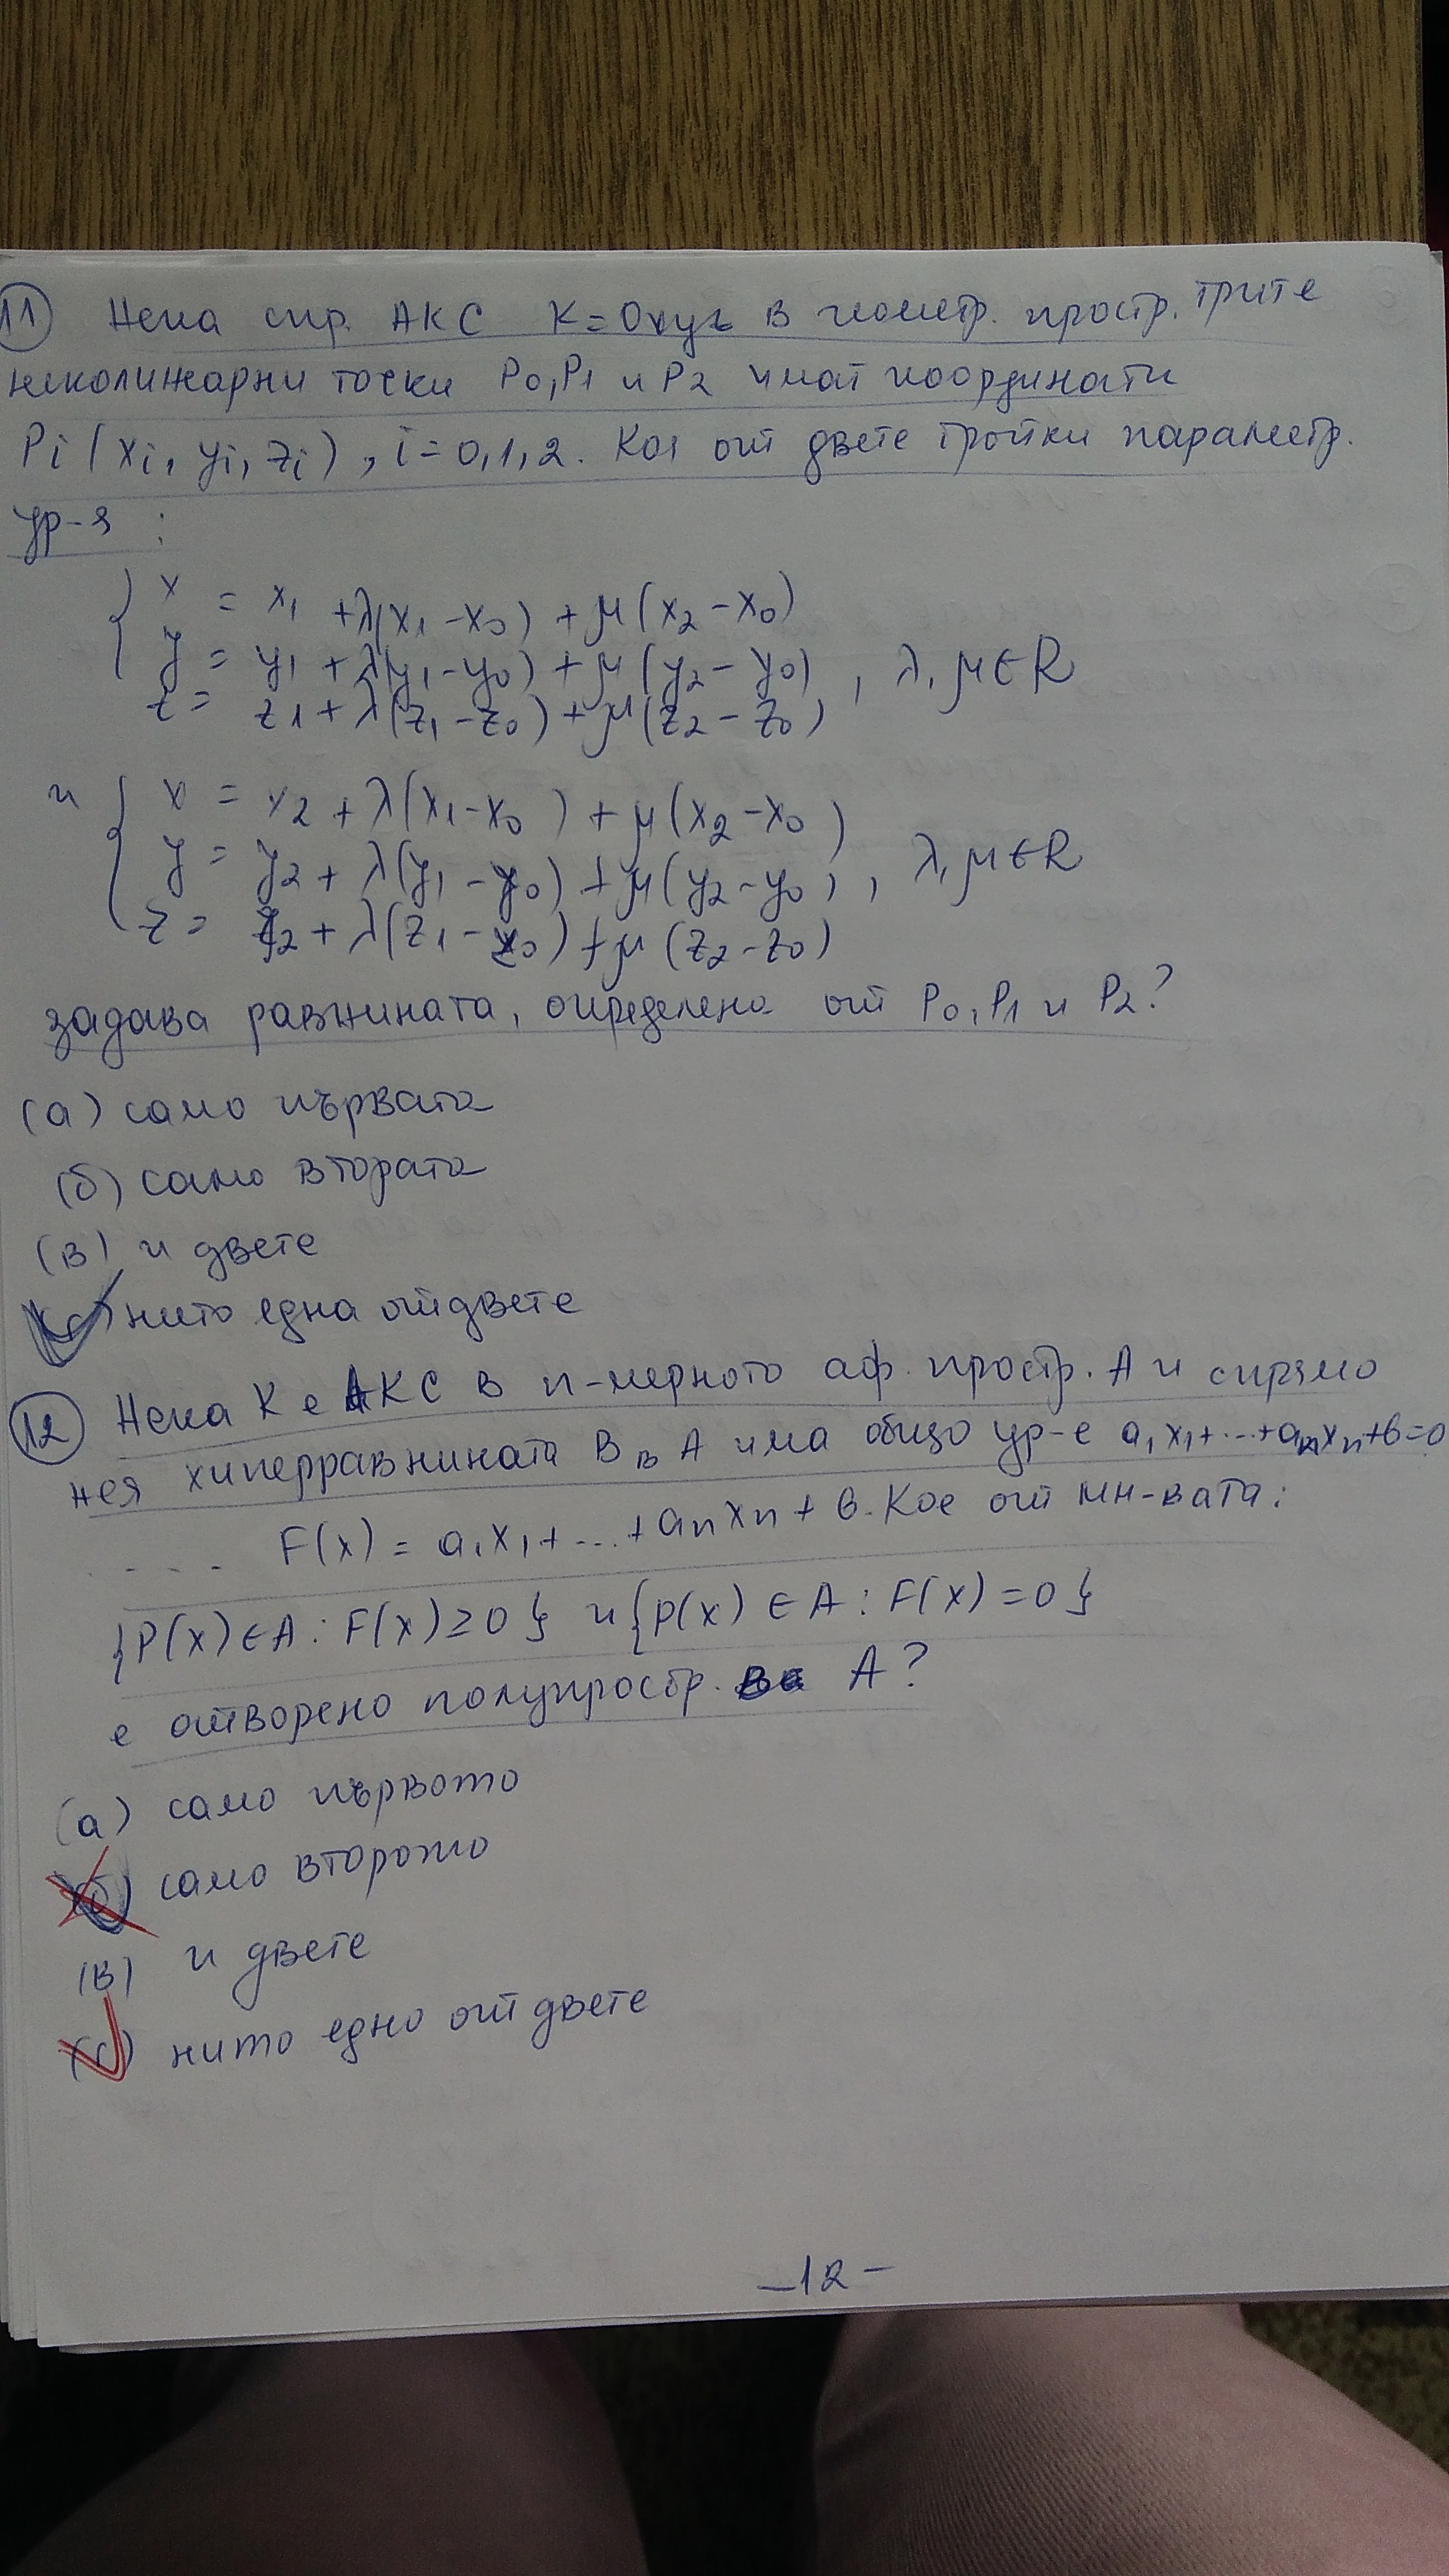 11 Нека спр. АКС K=Oxyz в геометр. простр. трите
неколинеарни точки P0, P1 и P2 имат координати
Pi (xi, yi, zi), i=0,1,2. Коя от двете тройки параметр.
ур-я :
x = x1 + λ(x1-x0) + μ(x2-x0)
y = y1 + λ(y1-y0) + μ(y2-y0), λ, μ ∈ R
z = z1 + λ(z1-z0) + μ(z2-z0)
и { x = x2 + λ(x1-x0) + μ(x2-x0)
y = y2 + λ(y1-y0) + μ(y2-y0), λ, μ ∈ R
z = z2 + λ(z1-z0) + μ(z2-z0)
задава равнината, определена от P0, P1 и P2?
(а) само първата
(б) само втората
(в) и двете
(г) нито една от двете
12 Нека K е АКС в n-мерното аф. простр. A и спрямо
нея хиперравнината B в A има общо ур-е a1x1+...+anxn+b=0
.... F(x) = a1x1+...+anxn + b. Кое от мн-вата:
{P(x) ∈ A : F(x) ≥ 0} и {P(x) ∈ A : F(x) = 0}
е отворено полупростр. в A?
(а) само първото
(б) само второто
(в) и двете
(г) нито едно от двете
-12-